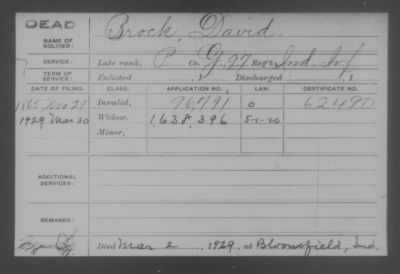 DEAD
NAME OF SOLDIER: Brock, David.
SERVICE: Late rank, P Co. G, 97 Reg't Ind. Inf
TERM OF SERVICE: Enlisted , 1 Discharged , 1
DATE OF FILING. CLASS. APPLICATION NO. LAW. CERTIFICATE NO.
1865 Nov 29 Invalid, 76,491 0 62490
1929 Mar 30 Widow, 1,638,396 5-1-20
Minor,
ADDITIONAL SERVICES:
REMARKS:
Died Mar 2, 1929, at Bloomfield, Ind.